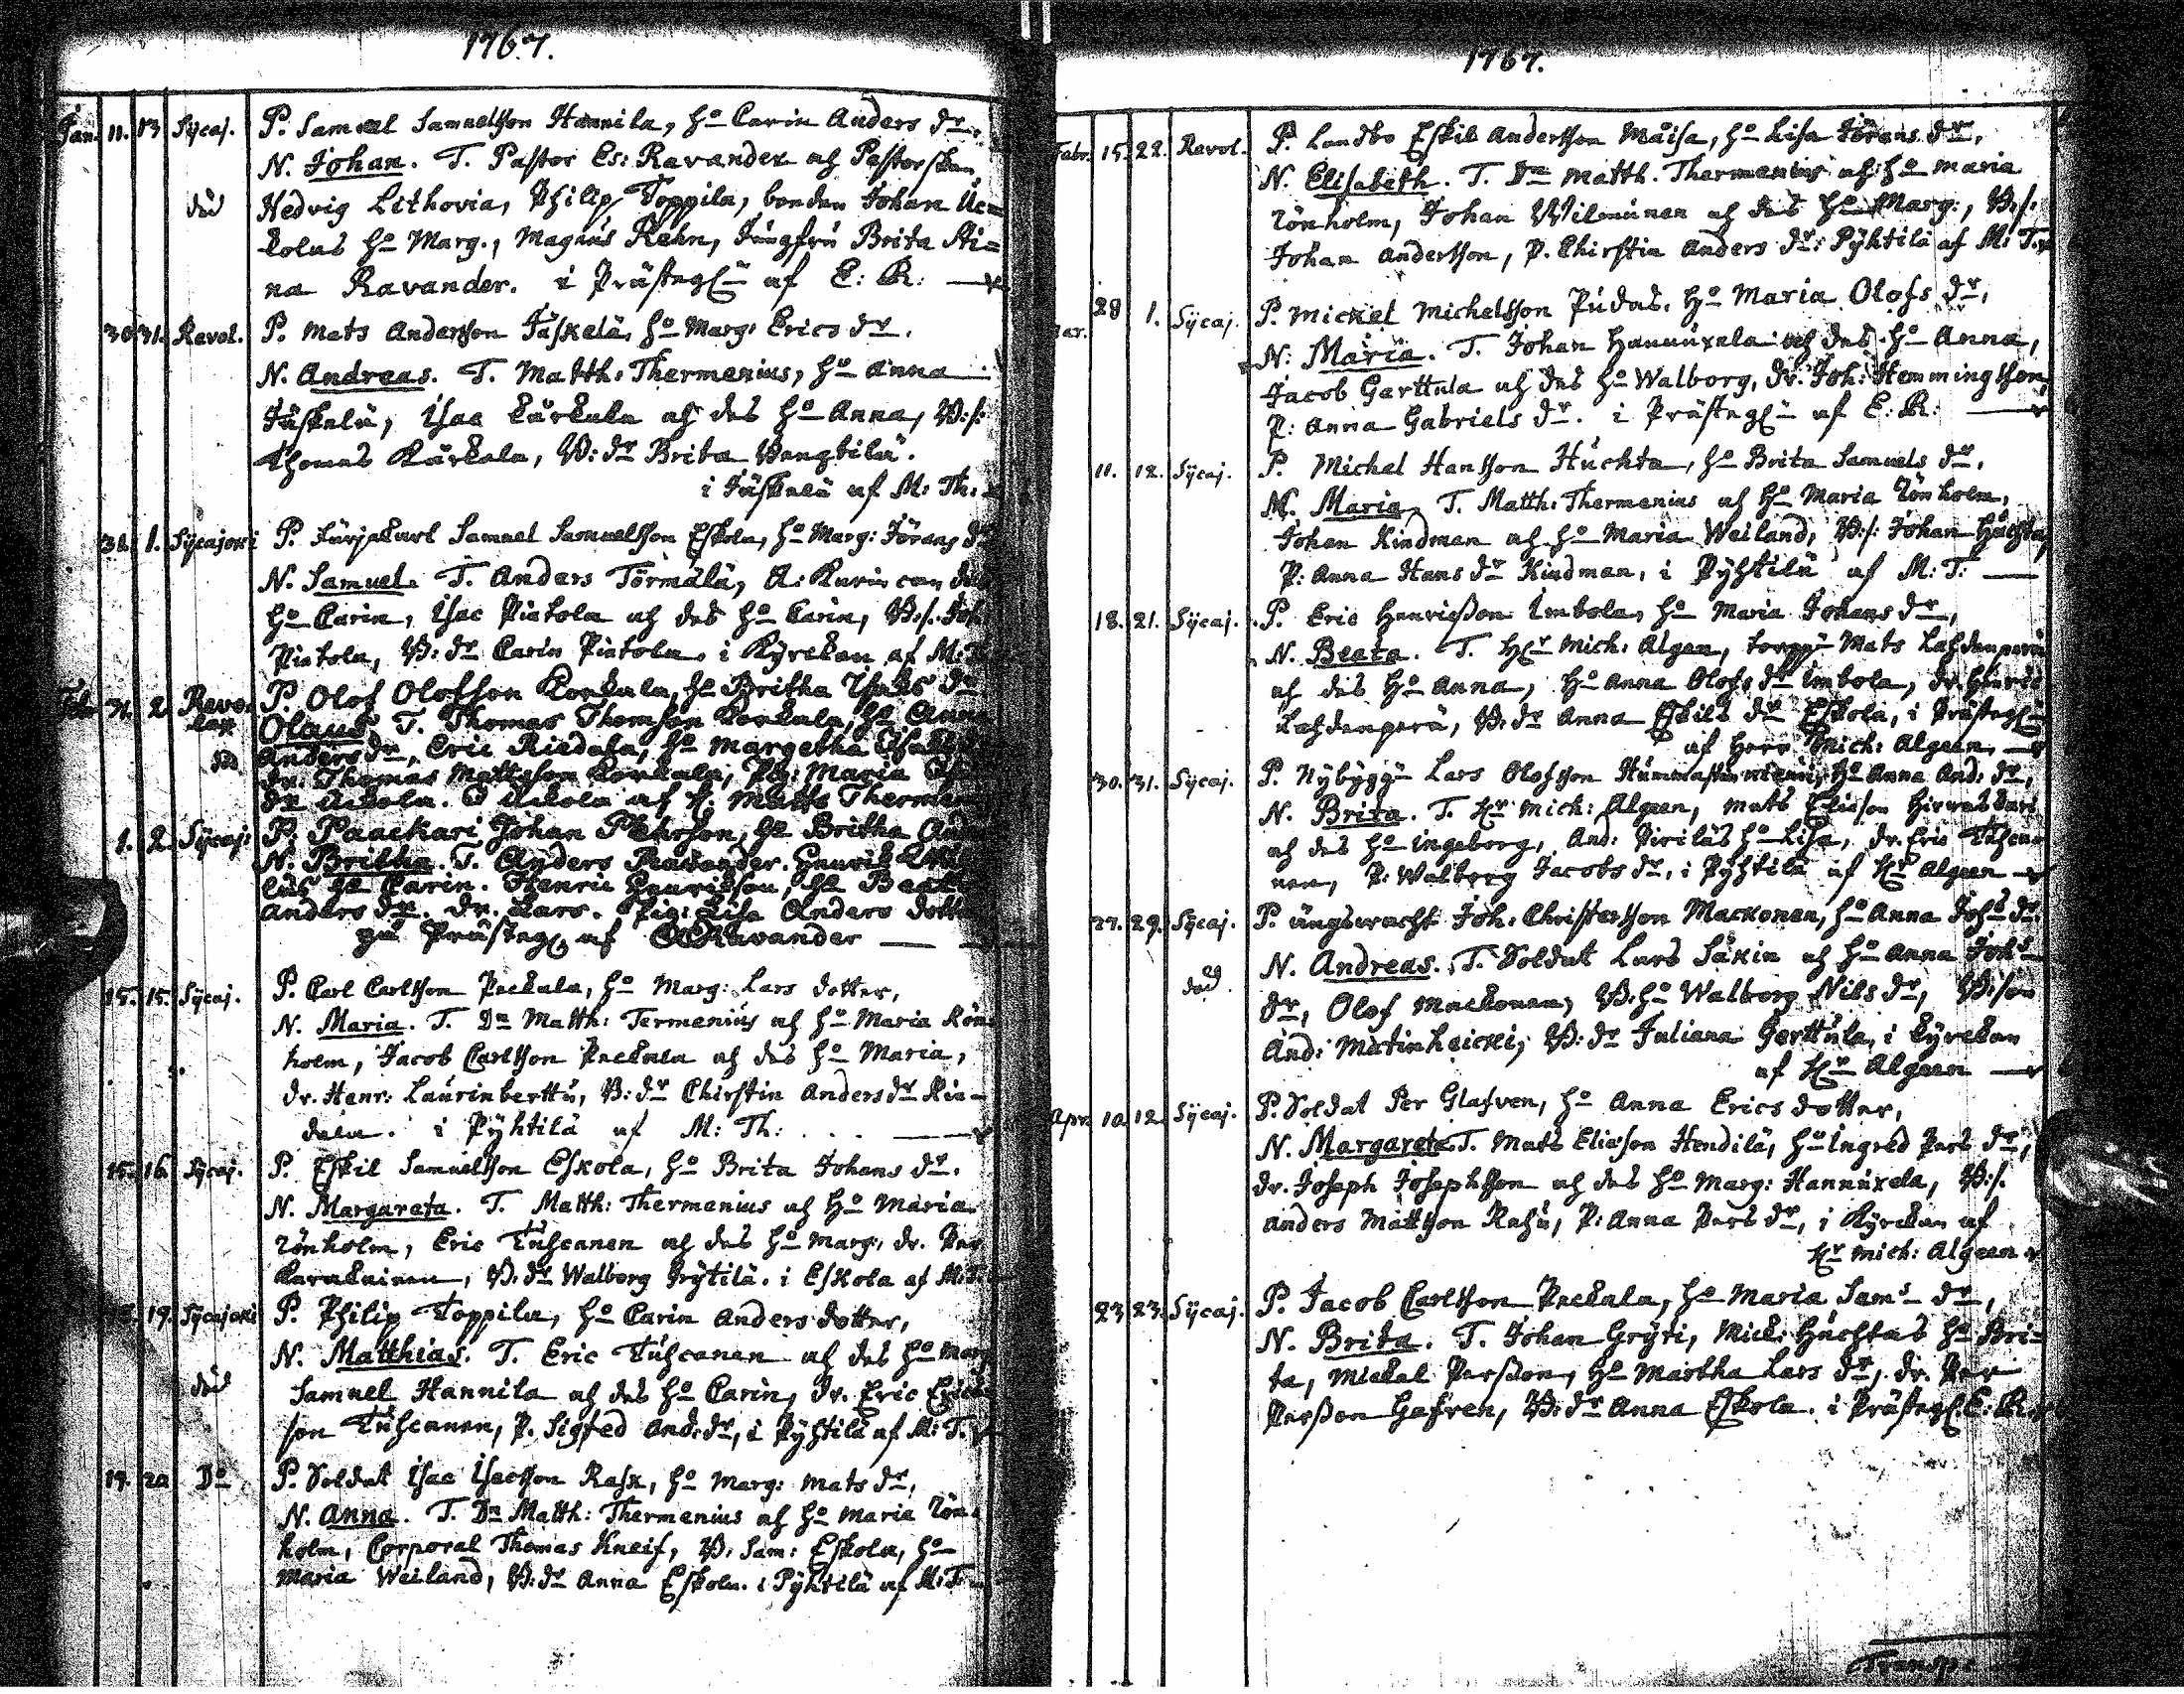 1767.
Jan. 11. 13 Sÿcaj. P. Samuel Samuelsson Hannila, ho Carin Anders dr.
N. Johan. T. Pastor Es: Ravander och Pastorskan
död Hedvig Lithovia, Philip Toppila, bonden Johan Uc=
kolas ho Marg., Magnus Rehn, Jungfru Brita Sti=
na Ravander. i Prästeg af E: R:
30 31. Revol. P. Mats Andersson Jäskelä, ho Marg: Erics dr.
N. Andreas. T. Matth: Thermenius, ho Anna
Jäskelä, Isac Kärkala och des ho Anna, B:s:
Thomas Kärkala, B: dr Brita
i Jäskelä af M: Th:
31. 1. Sÿcajoki P. Samuel Samuelsson Eskola, ho Marg: Jörans dr
N. Samuel. T. Anders Törmälä, A:
ho Carin, Isac Piatola och des ho Carin, B:s. Joh
Piatola, B: dr Carin Piatola. i Kÿrckan af M: T.
Febr 31. 2. Revo P. Olof Olofsson Korkala, ho Britha Isaks dr
lax Olaus T. Thomas Thomsson Korkala, ho Anna
död Anders dr, Eric Riedala, ho Margetha
dr. Thomas Mattsson Korkala, Pig: Maria
dr Uckola. I Uckola af H. Matts Thermen
1. 2. Sÿcaj: P. Paackari Johan Pehrson, ho Britha And
N. Britha. T. Anders Ravander. Henrik
ho Carin. Henric Henrikson, ho Beat
Anders dr. dr. Lars. Pig: Lisa Anders dotter
på Prästeg. af Ravander
15. 15. Sÿcaj. P. Carl Carlsson Packala, ho Marg: Lars dotter,
N. Maria. T. Dn Matth: Termenius och ho Maria Rön
holm, Jacob Carlsson Packala och des ho Maria,
dr. Henr: Laurinberttu, B: dr Chirstin Anders dr Rie-
dala. i Pÿhtilä af M: Th:
15. 16. Sÿcaj. P. Eskil Samuelsson Eskola, ho Brita Johans dr.
N. Margareta. T. Matth: Thermenius och ho Maria
Rönholm, Eric Tuhcanen och des ho Marg:, dr. Per
B: dr Walborg i Eskola af M: T.
19. Sÿcajoki P. Philip Toppila, ho Carin Anders dotter,
N. Matthias. T. Eric Tuhcanen och des ho Marg
död Samuel Hannila och des ho Carin, dr. Eric Erics
son Tuhcanen, P. Sigfred And: dr, i Pÿhtilä af M: T.
19. 20 Do P. Soldat Isac Isacsson Rask, ho Marg: Mats dr,
N. Anna. T. Dn Matth: Thermenius och ho Maria Rön
holm, Corporal Thomas Kneif, B: Sam: Eskola, ho
Maria Weiland, B: dr Anna Eskola. i Pÿhtilä af M: T.
1767.
Febr. 15. 22. Revol. P. Landbo Eskil Andersson Maisa, ho Lisa Jörans dr,
N. Elisabeth. T. Dn Matth. Thermenius och ho Maria
Rönholm, Johan Wilmunen och des ho Marg:, B:s:
Johan Andersson, P. Chirstin Anders dr: Pÿhtilä af M: T.
Mar. 28 1. Sÿcaj. P. Mickel Michelsson Pudas, Ho Maria Olofs dr,
N: Maria. T. Johan Hannuxela och des ho Anna,
Jacob Gerttula och des ho Walborg, dr. Joh: Hemmingsson,
P: Anna Gabriels dr. i Prästeg af E: R:
11. 12. Sÿcaj. P. Michel Hansson Huchta, ho Brita Samuels dr,
N. Maria. T. Matth: Thermenius och ho Maria Rönholm,
Johan Kindman och ho Maria Weiland, B:s: Johan Huchta,
P: Anna Hans dr Kindman, i Pÿhtilä af M: T:
18. 21. Sÿcaj. P. Eric Henricsson Imbola, ho Maria Johans dr,
N. Beata. T. Hr Mich: Algen, Mats Lahdenperä
och des ho Anna, ho Anna Olofs dr Imbola, dr. Henric
Lahdenperä, B: dr Anna Eskils dr Eskola, i Prästeg
af Herr Mich: Algeen.
30. 31. Sÿcaj. P. Nÿbÿgg Lars Olofsson ho Anna And: dr,
N. Brita. T. Hr Mich: Algeen, Mats Eliasson
och des ho Ingeborg, And: Piriläs ho Lisa, dr. Eric Tuhca-
nen, P: Walborg Jacobs dr, i Pÿhtilä af Hr Algeen
27. 29. Sÿcaj. P. ängswacht Joh: Christersson Mackonen, ho Anna Johs dr.
N. Andreas. T. Soldat Lars Säkin och ho Anna Johs
död dr, Olof Mackonen, B: ho Walborg Nils dr, B: son
And: Matinheicki, B: dr Juliana Gerttula, i Kÿrckan
af Hr Algeen
Apr. 10 12. Sÿcaj. P. Soldat Per Glafven, ho Anna Erics dotter,
N. Margareta. T. Mats Eliasson Hendilä, ho Ingred Pers dr,
dr. Joseph Josephsson och des ho Marg: Hannuxela, B:s.
Anders Mattsson Rahu, P: Anna Pers dr, i Kÿrckan af
Hr Mich: Algeen
23 23. Sÿcaj. P. Jacob Carlsson Packala, ho Maria Sams dr,
N. Brita. T. Johan Grÿti, Mick: Huchtas ho Bri-
ta, Mickel Persson, ho Martha Lars dr, dr. Per
Persson Gafven, B: dr Anna Eskola. i Prästeg. E: R.